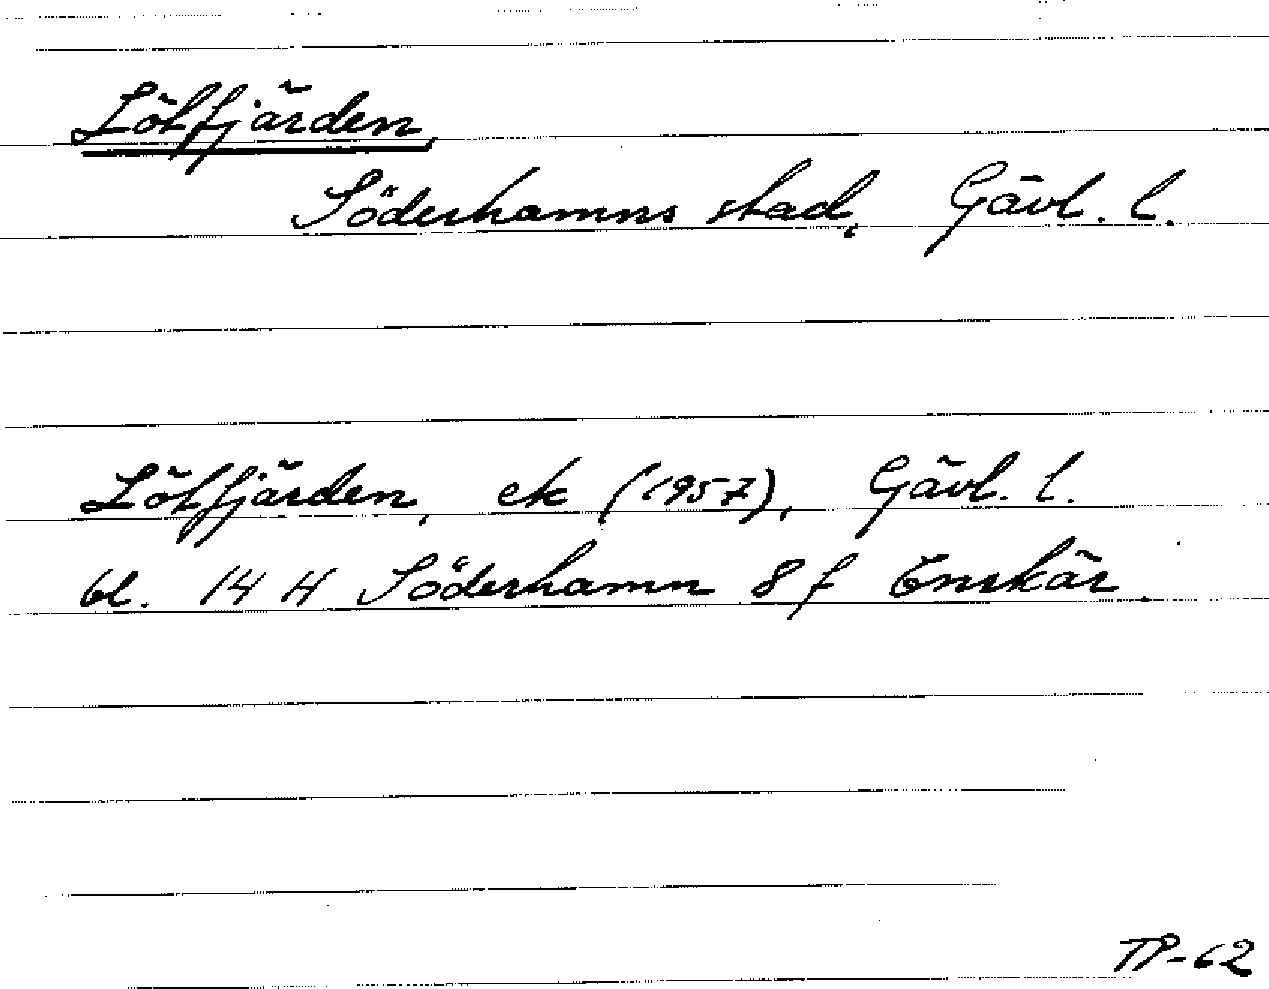 Lötfjärden,
Söderhamns stad, Gävl. l.
Lötfjärden, ek (1957), Gävl. l.
bl. 14 H Söderhamn 8 f Enskär.
TP-62